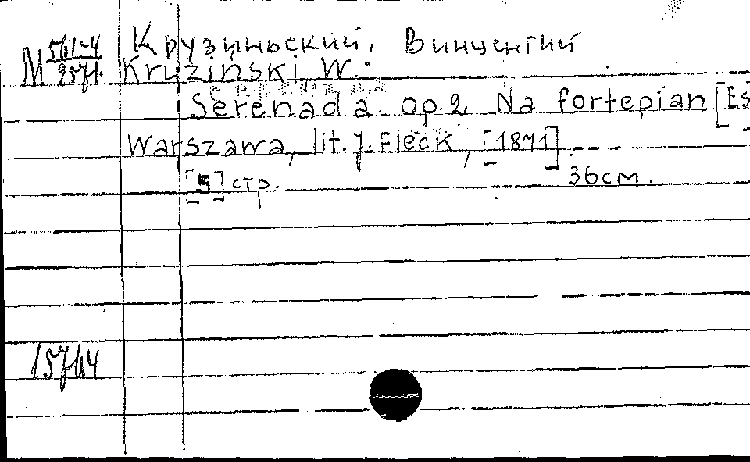 М 561-4 Крузиньский, Винцентий
2571. Kruziński W.
Serenada op 2 Na fortepian [Es
Warszawa, lit. J. Fleck, [1871].
[5] стр. 36см.